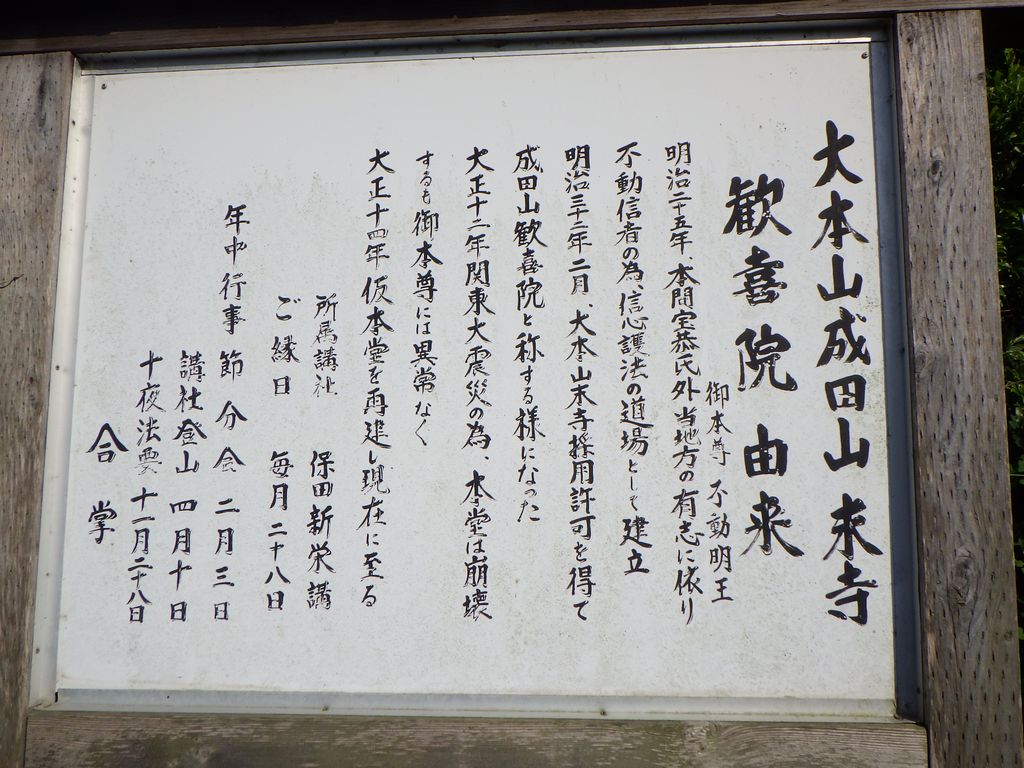 大本山成田山末寺
歓喜院由来
御本尊 不動明王
明治二十五年、本間定恭氏外当地方の有志に依り
不動信者の為、信心護法の道場として建立
明治三十二年二月、大本山末寺採用許可を得て
成田山歓喜院と称する様になった
大正十二年関東大震災の為、本堂は崩壊
するも御本尊には異常なく
大正十四年仮本堂を再建し現在に至る
所属講社 保田新栄講
ご縁日 毎月二十八日
年中行事 節分会 二月三日
講社登山 四月十日
十夜法要 十一月二十八日
合掌